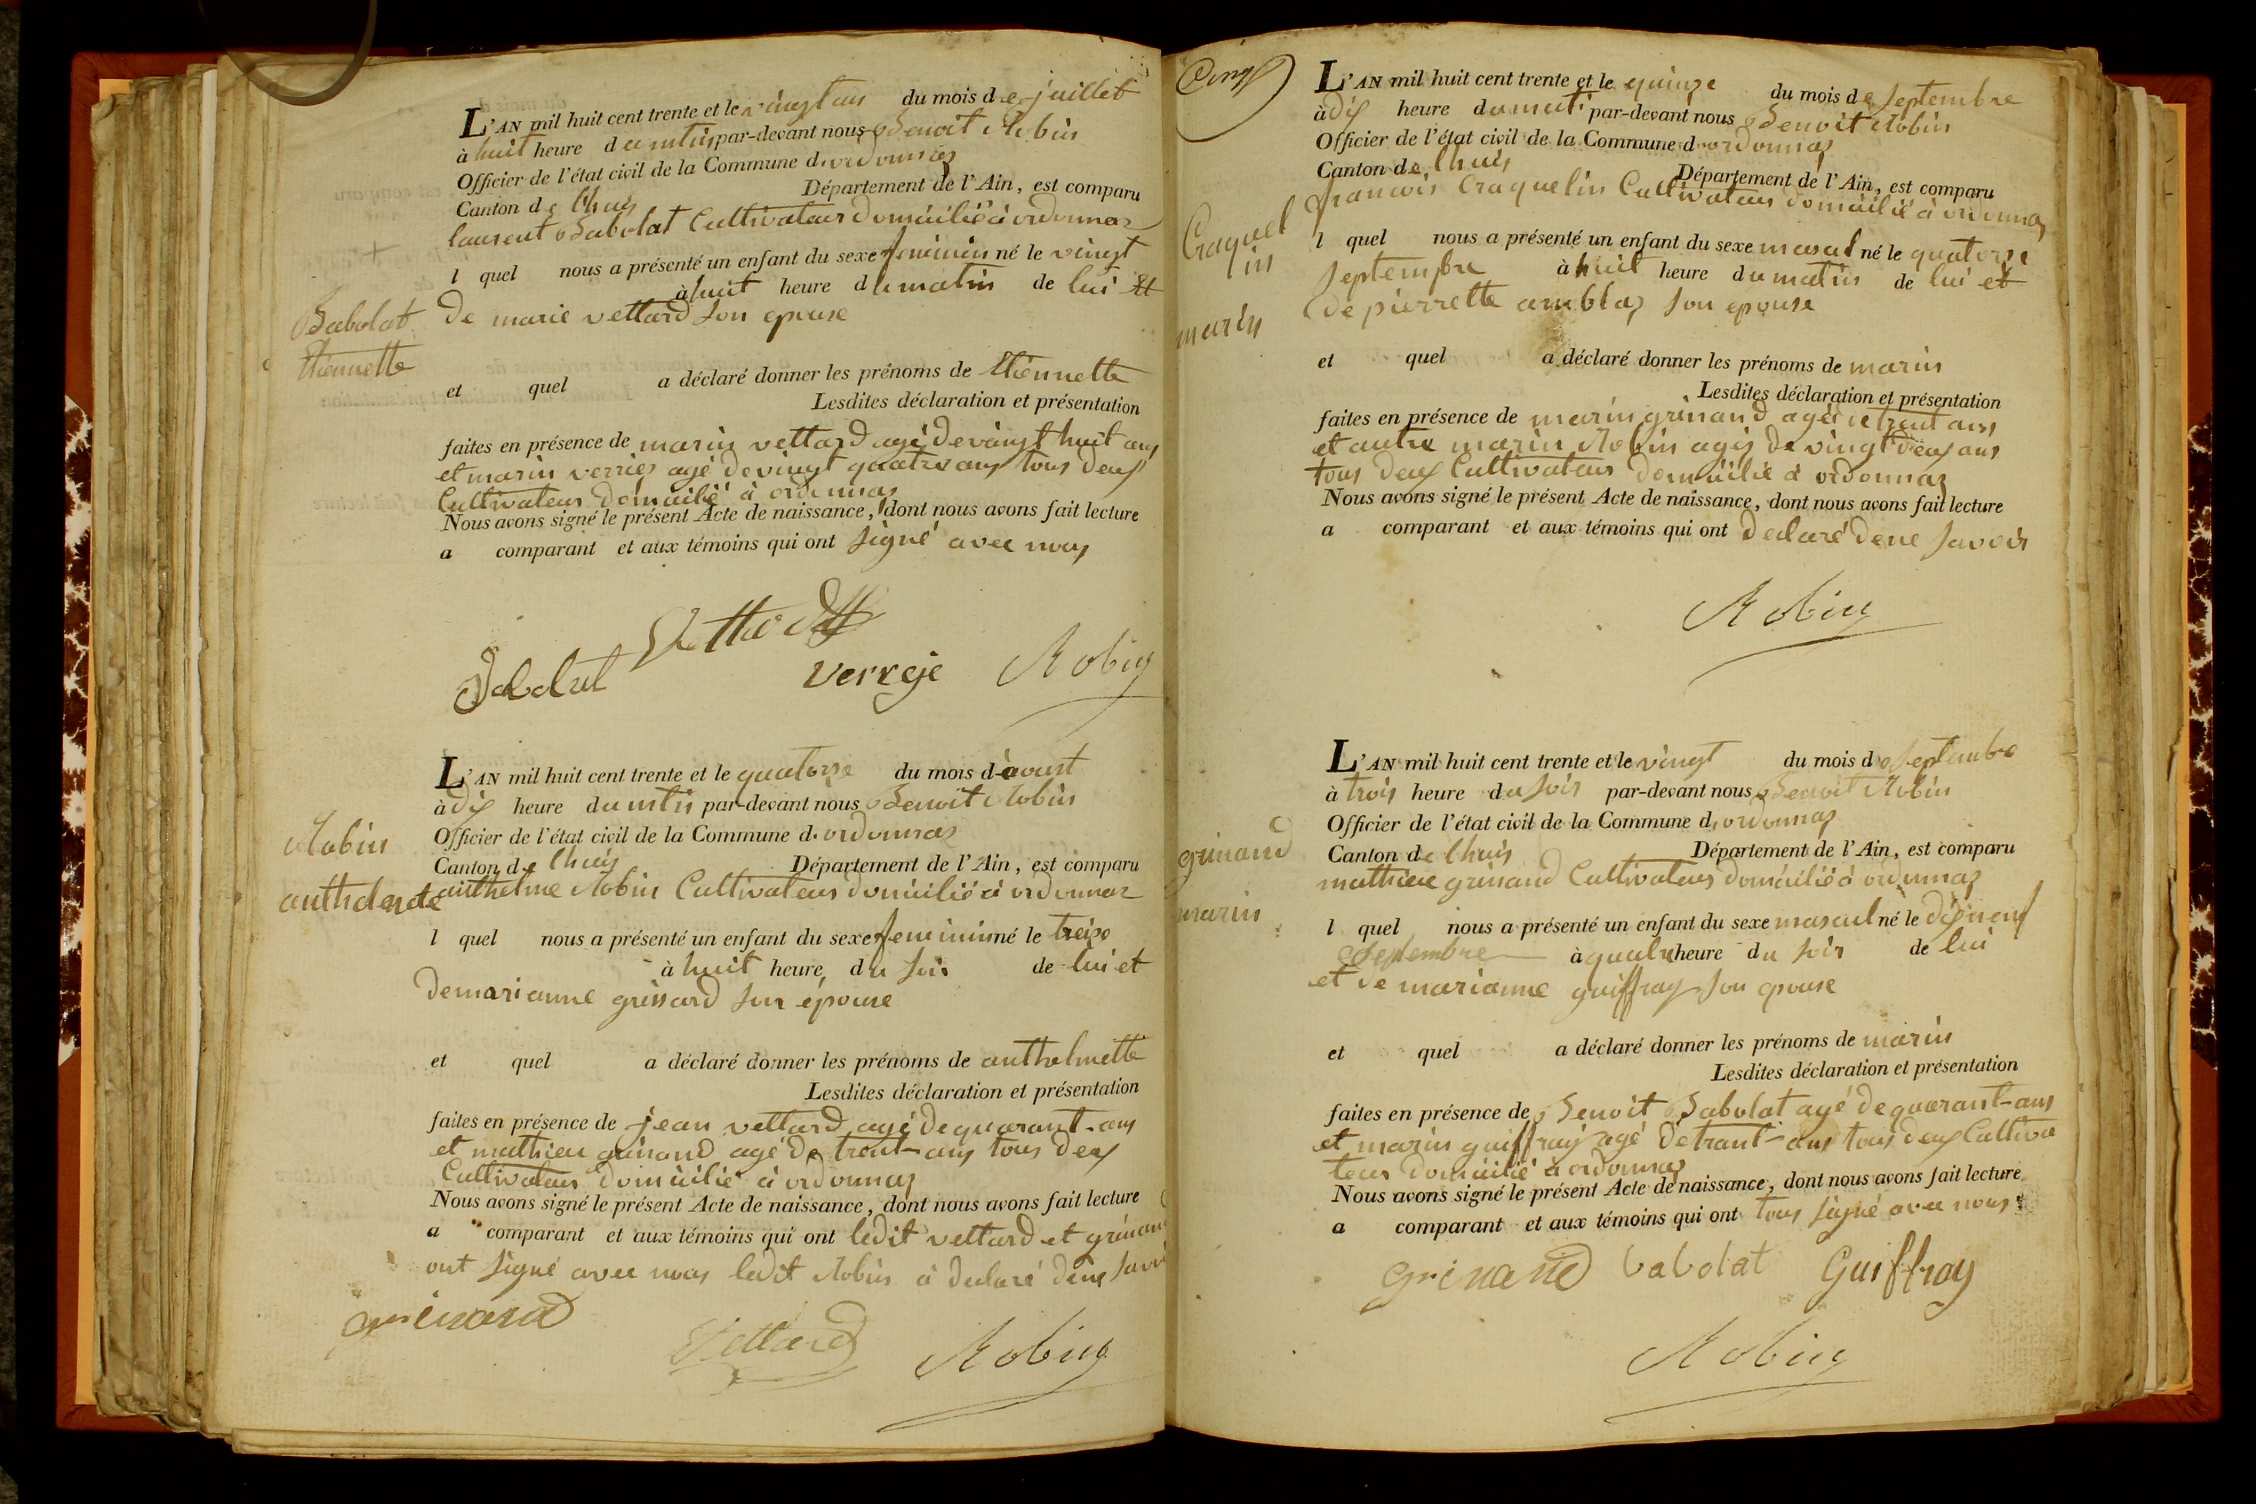 L'AN mil huit cent trente et le vingt un du mois de juillet
à huit heure du mtin par-devant nous Benoit Robin
Officier de l'état civil de la Commune d'ordonnas
Canton de lhuis Département de l'Ain, est comparu
laurent Babolat Cultivateur domicilié à ordonnas
l quel nous a présenté un enfant du sexe feminin né le vingt
à huit heure du matin de lui et
de marie vettard son epouse
Babolat
Etiennette
et quel a déclaré donner les prénoms de Etiennette
Lesdites déclaration et présentation
faites en présence de marin vettard agé de vingt huit ans
et marin verrier agé de vingt quatre ans tous deux
Cultivateur domicilié à ordonnas
Nous avons signé le présent Acte de naissance, dont nous avons fait lecture
a comparant et aux témoins qui ont signé avec nous
Babolat Vettard
verreje Robin
L'AN mil huit cent trente et le quatorse du mois d'aoust
à dix heure du mtin par-devant nous Benoit Robin
Officier de l'état civil de la Commune d'ordonnas
Robin
Canton de lhuis Département de l'Ain, est comparu
anthelme Robin Cultivateur domicilié à ordonnas
l quel nous a présenté un enfant du sexe feminin né le treize
à huit heure du soir de lui et
de marianne grinand son épouse
et quel a déclaré donner les prénoms de anthelmette
Lesdites déclaration et présentation
faites en présence de jean vettard agé de quarant ans
et mathieu grinand agé de trent ans tous deux
Cultivateur domicilié à ordonnas
Nous avons signé le présent Acte de naissance, dont nous avons fait lecture
a comparant et aux témoins qui ont ledit vettard et grinand
ont signé avec nous ledit Robin a declaré dene
grinand
Vettard Robin
Cinq
L'AN mil huit cent trente et le quinze du mois de septembre
à dix heure du mati par-devant nous Benoit Robin
Officier de l'état civil de la Commune d'ordonnas
Canton de lhuis Département de l'Ain, est comparu
francois Craquelin Cultivateur domicilié à ordonnas
Craquel
in
marin
l quel nous a présenté un enfant du sexe mascul né le quatorse
septembre à huit heure du matin de lui et
de pierrette amblas son epouse
et quel a déclaré donner les prénoms de marin
Lesdites déclaration et présentation
faites en présence de marin grinand agé de trent ans
et autre marin Robin agés de vingt deux ans
tous deux Cultivateur domicilié à ordonnas
Nous avons signé le présent Acte de naissance, dont nous avons fait lecture
a comparant et aux témoins qui ont declaré dene savoir
Robin
L'AN mil huit cent trente et le vingt du mois de septembre
à trois heure du soir par-devant nous Benoit Robin
Officier de l'état civil de la Commune d'ordonnas
grinand
marin
Canton de lhuis Département de l'Ain, est comparu
mathieu grinand Cultivateur domicilié à ordonnas
l quel nous a présenté un enfant du sexe mascul né le dix neuf
septembre à quatre heure du soir de lui
et de marianne guiffray son epouse
et quel a déclaré donner les prénoms de marin
Lesdites déclaration et présentation
faites en présence de Benoit Babolat agé de quarant ans
et marin guiffray agé de trant ans tous deux Cultiva
teur domicilié à ordonnas
Nous avons signé le présent Acte de naissance, dont nous avons fait lecture
a comparant et aux témoins qui ont tous signé avec nous
grinand babolat Guiffray
Robin